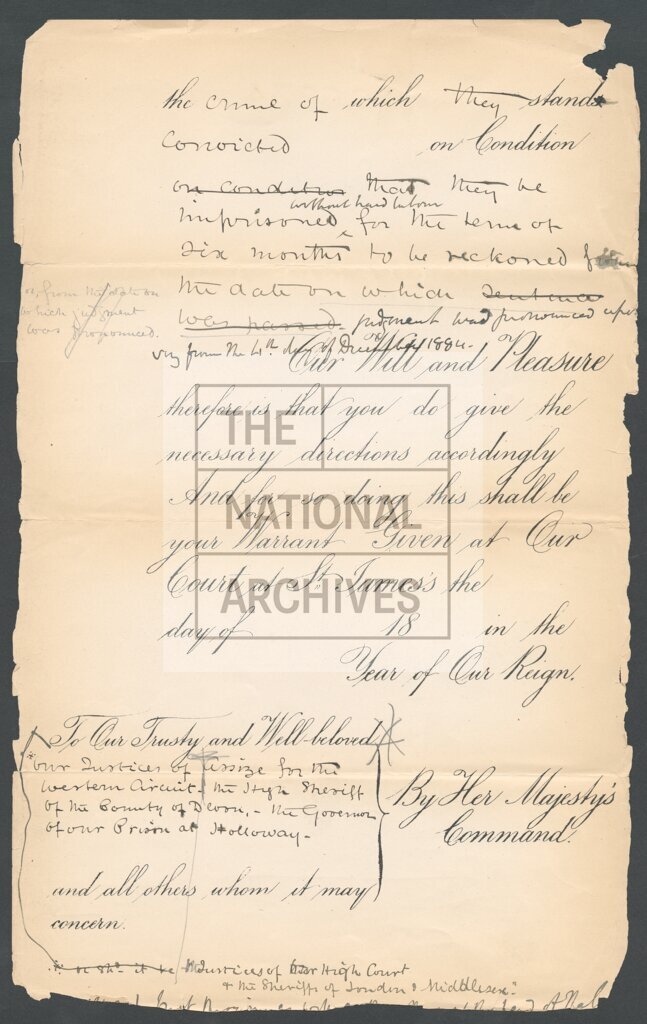 the crime of which they stand
convicted on Condition
on condition that they be
without hard labour
imprisoned for the term of
six months to be reckoned from
the date on which sentence
or, from the date on
which judgment
was pronounced.
was passed judgment was pronounced upon
viz from the 4th day of December 1884.
Our Will and Pleasure
therefore is that you do give the
necessary directions accordingly
And for so doing this shall be
your Warrant Given at Our
Court at St. James's the
day of 18 in the
Year of Our Reign.
THE
NATIONAL
ARCHIVES
To Our Trusty and Well-beloved
our Justices of Assize for the
Western Circuit - the High Sheriff
of the County of Devon, - the Governor
of our Prison at Holloway -
By Her Majesty's
Command.
and all others whom it may
concern.
or shd. it be Justices of Our High Court
& the Sheriffs of London & Middlesex."